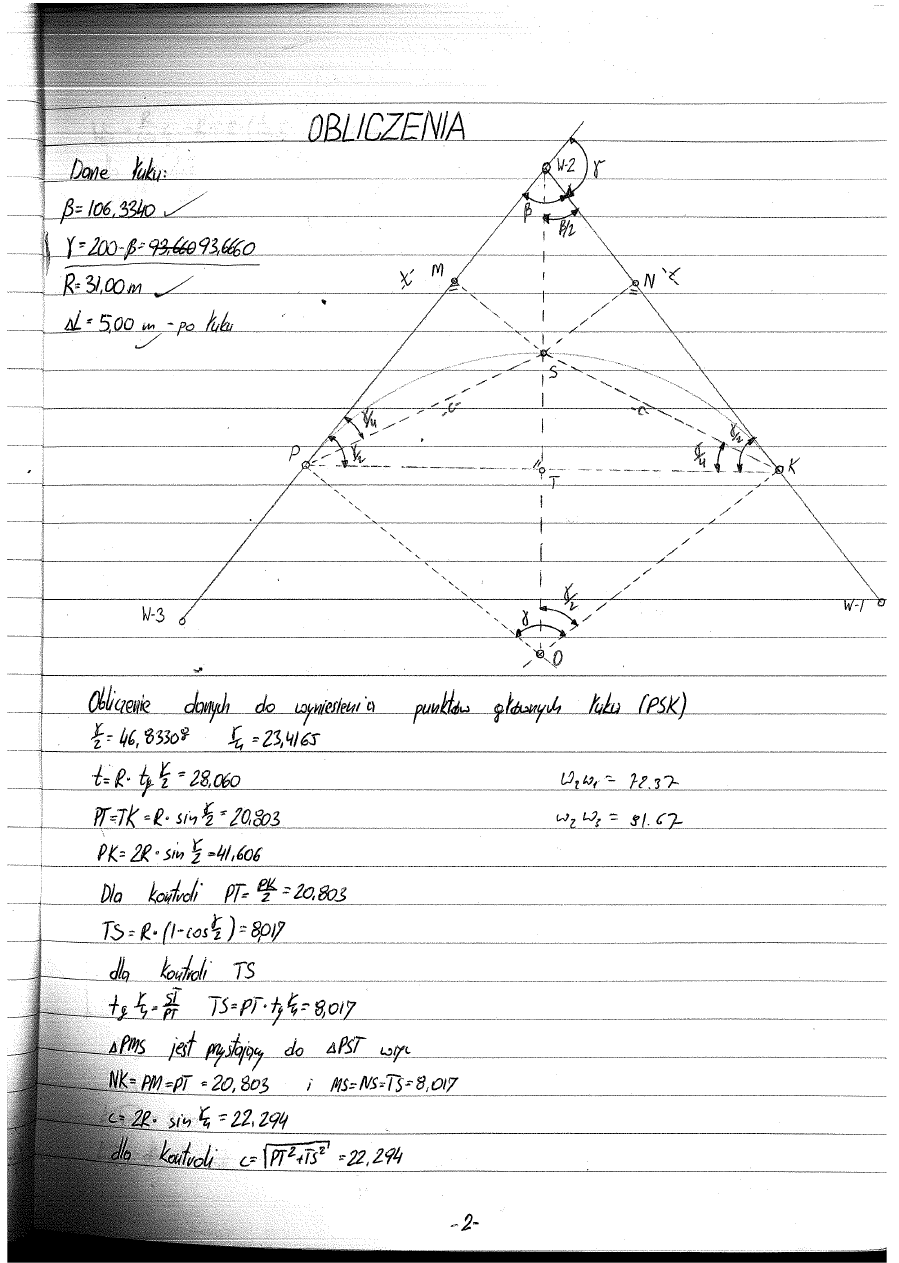 OBLICZENIA
Dane łuku:
β=106,3340 ✓
γ=200-β=~~93,660~~ 93,6660
R=31,00m ✓
ΔŁ=5,00 m - po łuku ✓
W-2
γ
β
β/2
M
N
S
-c-
-c-
γ/4
γ/2
γ/4
γ/2
P
T
K
W-3
W-1
γ
γ/2
O
Obliczenie danych do wyniesienia punktów głównych łuku (PSK)
γ/2=46,8330g γ/4=23,4165
t=R·tg γ/2=28,060 W₂W₁= 72.37
PT=TK=R·sin γ/2=20,803 W₂W₃= 81.67
PK=2R·sin γ/2=41,606
Dla kontroli PT=PK/2=20,803
TS=R·(1-cos γ/2)=8,017
dla kontroli TS
tg γ/4=ST/PT TS=PT·tg γ/4=8,017
ΔPMS jest przystający do ΔPST więc
NK=PM=PT=20,803 i MS=NS=TS=8,017
c=2R·sin γ/4=22,294
dla kontroli c=√(PT²+TS²)=22,294
-2-